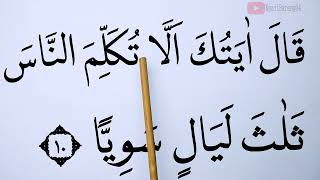 قَالَ اٰيَتُكَ اَلَّا تُكَلِّمَ النَّاسَ
ثَلٰثَ لَيَالٍ سَوِيًّا ۝١٠